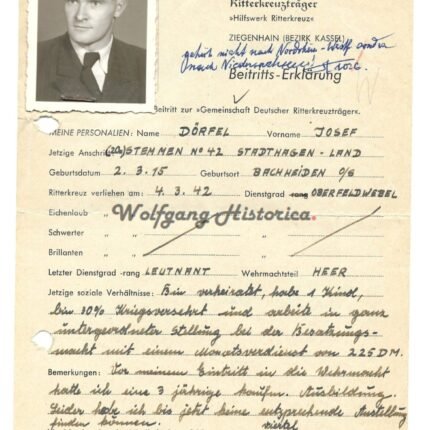 Ritterkreuzträger
»Hilfswerk Ritterkreuz«
ZIEGENHAIN (BEZIRK KASSEL)
gehört nicht nach Nordrhein-Westf. sondern
nach Niedersachsen
Beitritts-Erklärung
Beitritt zur »Gemeinschaft Deutscher Ritterkreuzträger«.
MEINE PERSONALIEN: Name DÖRFEL Vorname JOSEF
Jetzige Anschrift STEMMEN No 42 STADTHAGEN-LAND
Geburtsdatum 2.3.15 Geburtsort BACHHEIDEN O/S
Ritterkreuz verliehen am: 4.3.42 Dienstgrad -rang OBERFELDWEBEL
Eichenlaub „ „ „
Wolfgang Historica.
Schwerter „ „ „
Brillanten „ „ „
Letzter Dienstgrad -rang LEUTNANT Wehrmachtsteil HEER
Jetzige soziale Verhältnisse: Bin verheiratet, habe 1 Kind,
bin 30% Kriegsversehrt und arbeite in ganz
untergeordneter Stellung bei der Besatzungs-
macht mit einem Monatsverdienst von 225 DM.
Bemerkungen: Vor meinem Eintritt in die Wehrmacht
hatte ich eine 3 jährige kaufm. Ausbildung.
Leider habe ich bis jetzt keine entsprechende Anstellung
finden können.